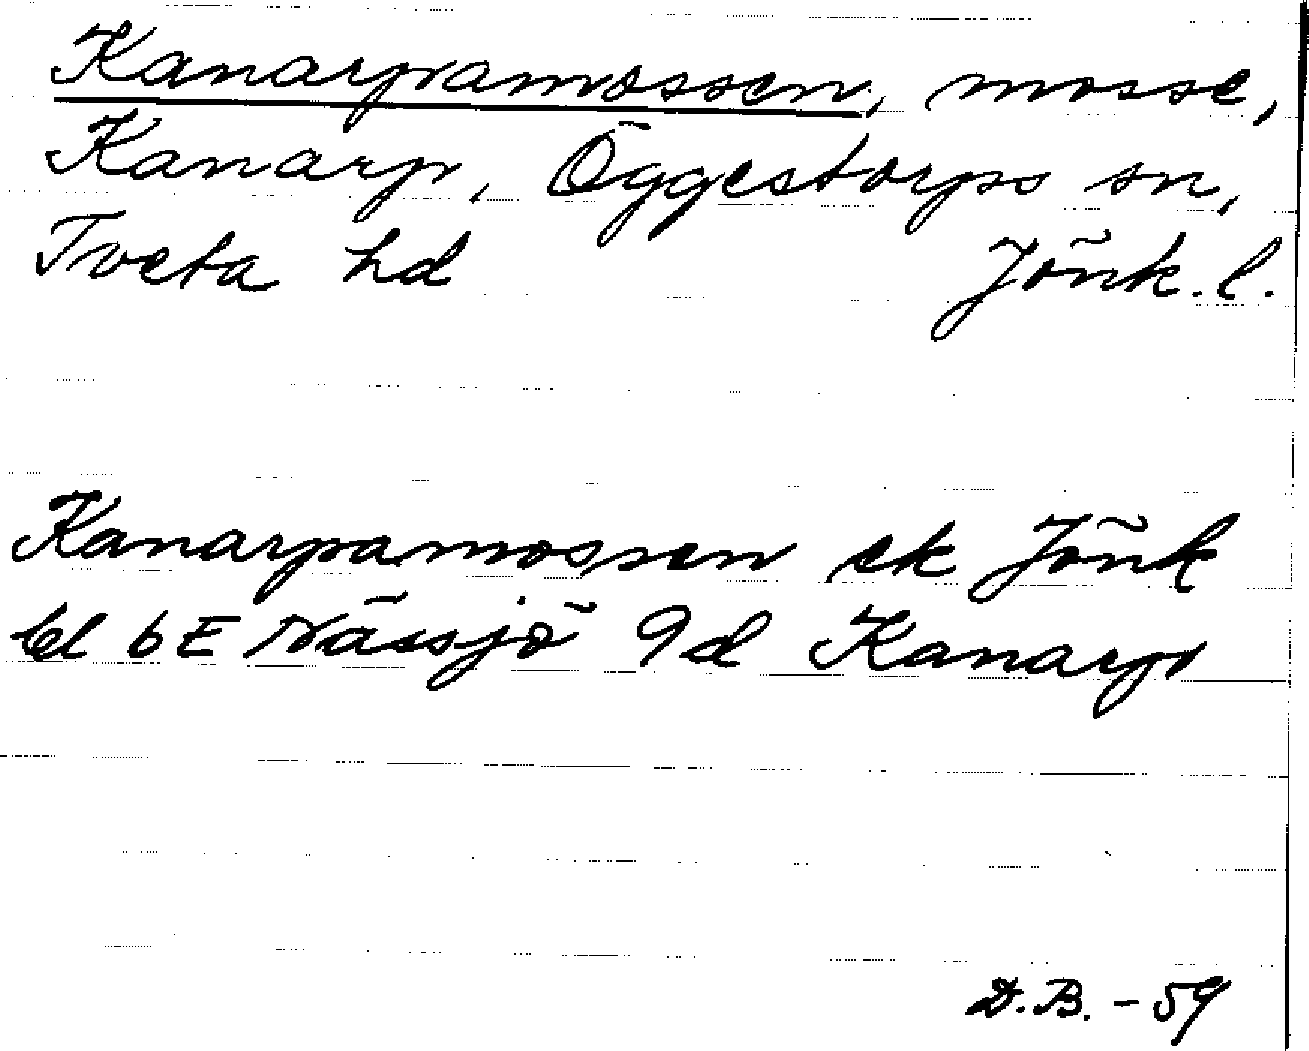 Kanarpamossen, mosse,
Kanarp, Öggestorps sn,
Tveta hd Jönk. l.
Kanarpamossen ek Jönk
bl 6E Nässjö 9d Kanarp
D.B. - 59